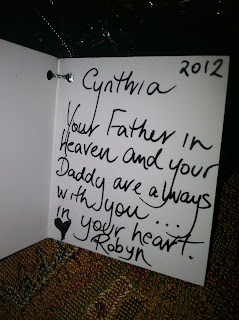 2012
Cynthia
Your Father in
Heaven and your
Daddy are always
with you...
in your heart.
Robyn